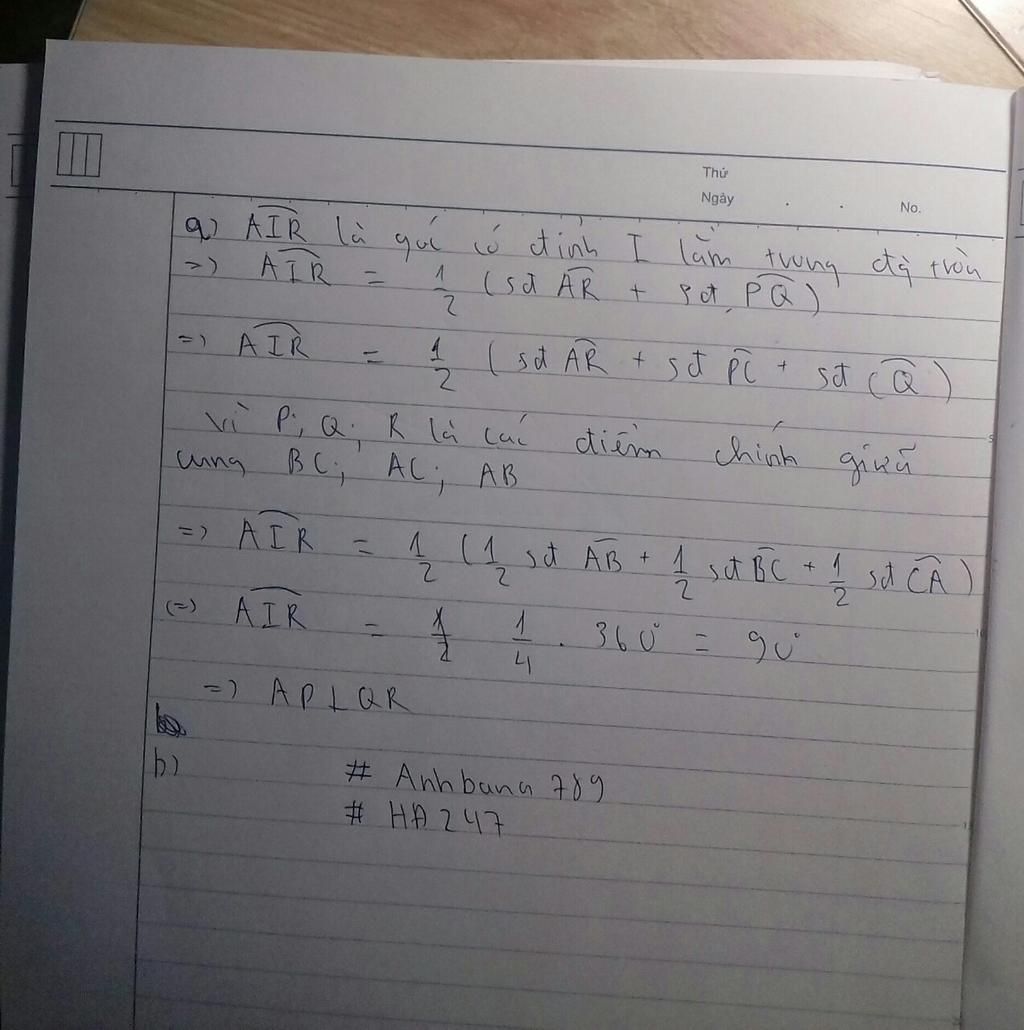 Thứ
Ngày . . No.
a) AIR là góc có đỉnh I lằm trong đg tròn
=) AIR = 1/2 (sđ AR + sđ PQ)
=) AIR = 1/2 (sđ AR + sđ PC + sđ CQ)
Vì P; Q; R là các điểm chính giữa
cung BC; AC; AB
=) AIR = 1/2 (1/2 sđ AB + 1/2 sđ BC + 1/2 sđ CA)
(=) AIR = 1/4 . 360° = 90°
=) AP⊥QR
b) # Anhbana789
# HA247